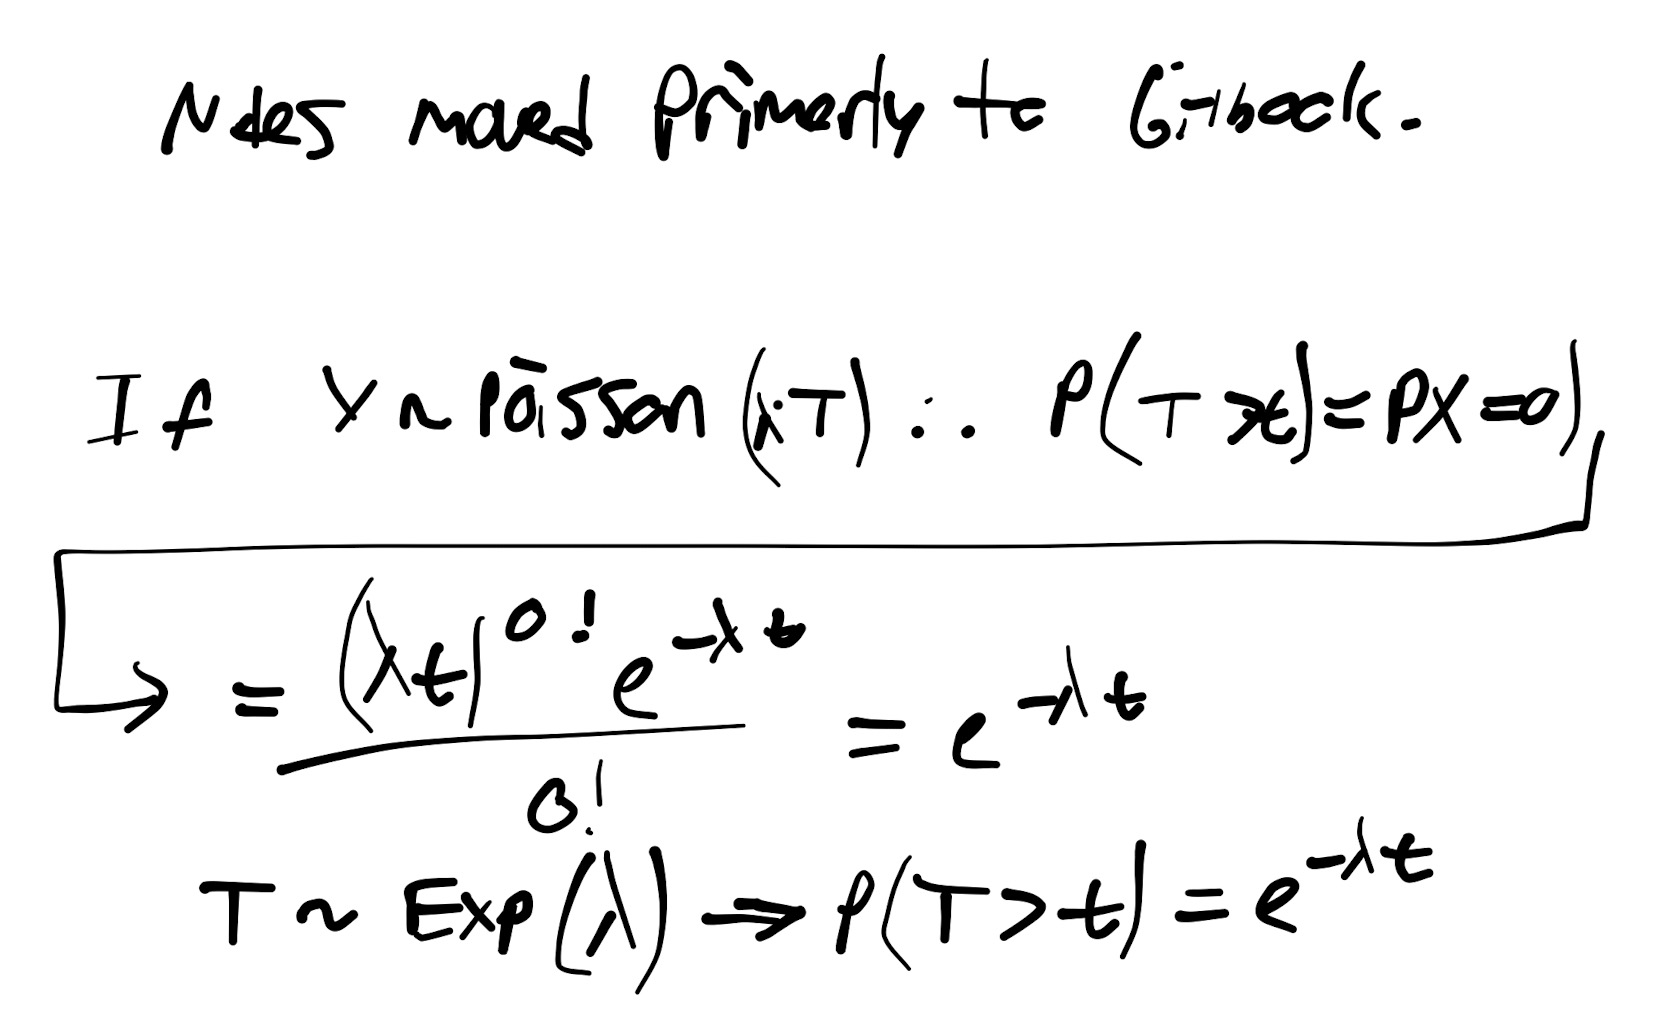 Notes moved Primerly to Gitbook.
If X ~ Poisson (λ·T) ∴ P(T > t) = PX = 0)
→ = (λt)^0! e^-λt / 0! = e^-λt
T ~ Exp(λ) ⇒ P(T > t) = e^-λt